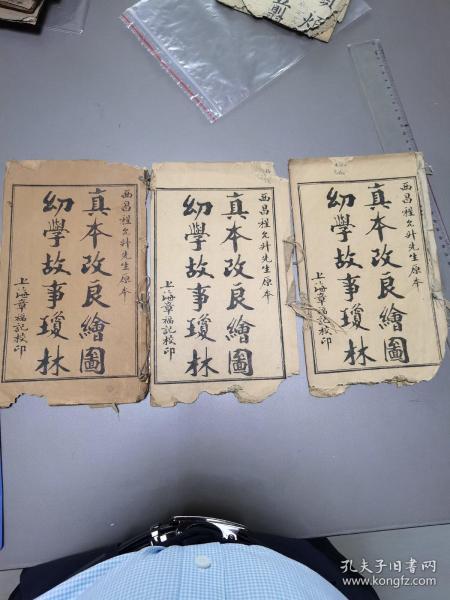 西昌程允升先生原本
真本改良繪圖
幼學故事瓊林
上海章福記校印
西昌程允升先生原本
真本改良繪圖
幼學故事瓊林
上海章福記校印
西昌程允升先生原本
真本改良繪圖
幼學故事瓊林
上海章福記校印
孔夫子旧书网
www.kongfz.com